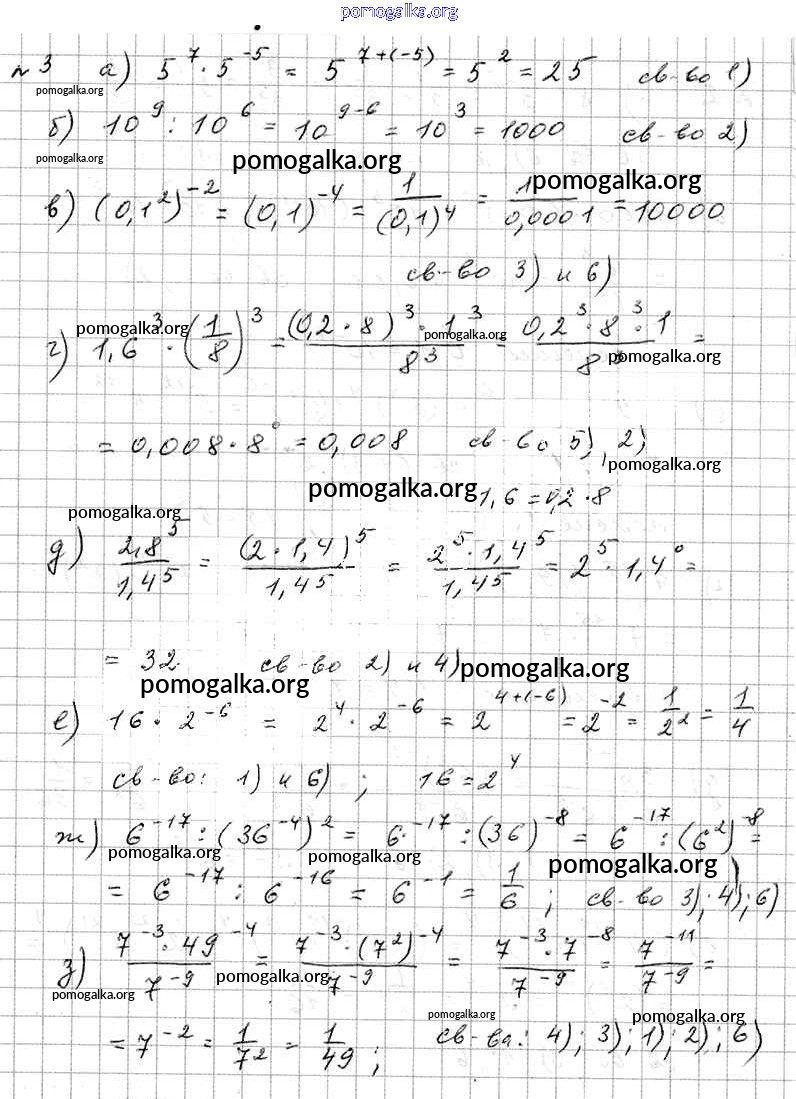 pomogalka.org
№3 а) 5⁷·5⁻⁵ = 5⁷⁺⁽⁻⁵⁾ = 5² = 25 св-во 1)
pomogalka.org
б) 10⁹ : 10⁶ = 10⁹⁻⁶ = 10³ = 1000 св-во 2)
pomogalka.org
pomogalka.org
pomogalka.org
в) (0,1²)⁻² = (0,1)⁻⁴ = 1/(0,1)⁴ = 1/0,0001 = 10000
св-во 3) и 6)
pomogalka.org
pomogalka.org
pomogalka.org
г) 1,6³ · (1/8)³ = (0,2·8)³·1³/8³ = 0,2³·8³·1/8³ =
= 0,008·8⁰ = 0,008 св-во 5), 2);
pomogalka.org
pomogalka.org
1,6 = 0,2·8
pomogalka.org
д) 2,8⁵/1,4⁵ = (2·1,4)⁵/1,4⁵ = 2⁵·1,4⁵/1,4⁵ = 2⁵·1,4⁰ =
= 32. св-во 2) и 4)
pomogalka.org
pomogalka.org
е) 16·2⁻⁶ = 2⁴·2⁻⁶ = 2⁴⁺⁽⁻⁶⁾ = 2⁻² = 1/2² = 1/4
св-во: 1) и 6) ; 16 = 2⁴
ж) 6⁻¹⁷ : (36⁻⁴)² = 6⁻¹⁷ : (36)⁻⁸ = 6⁻¹⁷ : (6²)⁻⁸ =
pomogalka.org
pomogalka.org
pomogalka.org
= 6⁻¹⁷ : 6⁻¹⁶ = 6⁻¹ = 1/6 ; св-во 3); 4); 6)
з) 7⁻³·49⁻⁴/7⁻⁹ = 7⁻³·(7²)⁻⁴/7⁻⁹ = 7⁻³·7⁻⁸/7⁻⁹ = 7⁻¹¹/7⁻⁹ =
pomogalka.org
pomogalka.org
pomogalka.org
pomogalka.org
= 7⁻² = 1/7² = 1/49 ; св-ва: 4); 3); 1); 2); 6)